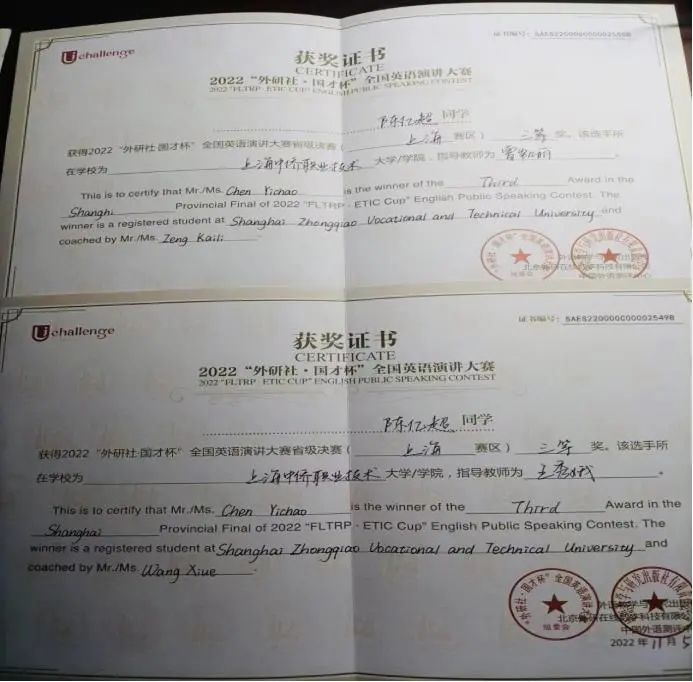 Uchallenge
证书编号： SAES220000C000002549B
获奖证书
CERTIFICATE
2022“外研社·国才杯”全国英语演讲大赛
2022 "FLTRP · ETIC CUP" ENGLISH PUBLIC SPEAKING CONTEST
陈亿超 同学
获得2022“外研社·国才杯”全国英语演讲大赛省级决赛（ 上海 赛区） 三等 奖。该选手所
在学校为 上海中侨职业技术 大学/学院，指导教师为 曾凯丽 。
This is to certify that Mr./Ms. Chen Yichao is the winner of the Third Award in the
Shanghi Provincial Final of 2022 "FLTRP · ETIC Cup" English Public Speaking Contest. The
winner is a registered student at Shanghai Zhongqiao Vocational and Technical University and
coached by Mr./Ms. Zeng Kaili .
组委会
Uchallenge
证书编号： SAES220000C000002549B
获奖证书
CERTIFICATE
2022“外研社·国才杯”全国英语演讲大赛
2022 "FLTRP · ETIC CUP" ENGLISH PUBLIC SPEAKING CONTEST
陈亿超 同学
获得2022“外研社·国才杯”全国英语演讲大赛省级决赛（ 上海 赛区） 三等 奖。该选手所
在学校为 上海中侨职业技术 大学/学院，指导教师为 王 。
This is to certify that Mr./Ms. Chen Yichao is the winner of the Third Award in the
Shanghai Provincial Final of 2022 "FLTRP · ETIC Cup" English Public Speaking Contest. The
winner is a registered student at Shanghai Zhongqiao Vocational and Technical University and
coached by Mr./Ms. Wang Xiue .
“外研社·国才杯”全国英语演讲大赛
组委会
北京外研在线数字科技有限公
中国外语测评中
2022 年 11 月 5